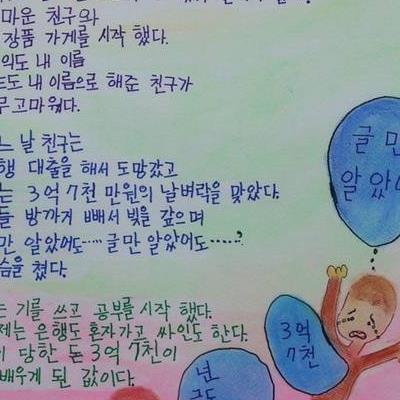 마운 친구와
장품 가게를 시작 했다.
의도 내 이름
드도 내 이름으로 해준 친구가
무 고마웠다.
느 날 친구는
행 대출을 해서 도망갔고
는 3억 7천 만원의 날벼락을 맞았다.
들 방까거 빼서 빚을 갚으며
만 알았어도..... 글만 알았어도.....'
슴을 쳤다.
는 기를 쓰고 공부를 시작 했다.
제는 은행도 혼자가고 싸인도 한다.
이 당한 돈 3억 7천이
배우게 된 값이다.
글만
알았어
3억
7천